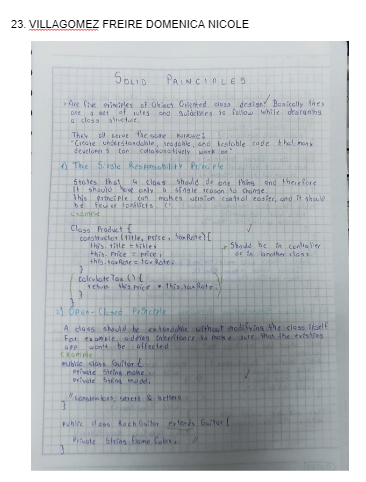 23. VILLAGOMEZ FREIRE DOMENICA NICOLE
SOLID PRINCIPLES
Are five principles of Object Oriented class design. Basically they
are a set of rules and guidelines to follow while designing
a class structure.
They all serve the same purpose:
"Create understandable, readable, and testable code that many
developers can collaboratively work on"
1) The Single Responsibility Principle
States that a class should do one thing and therefore
it should have only a single reason to change.
This principle can makes version control easier, and it should
be fewer conflicts.
Example
Class Product {
constructor (title, price, taxRate) {
this.title = title;
this.price = price;
this.taxRate = taxRate;
}
Should be in controller
or in another class.
calculateTax () {
return this.price * this.taxRate;
}
}
2) Open-Closed Principle
A class should be extendable without modifying the class itself
For example, adding inheritance to make sure that the existing
app won't be affected
Example
public class Guitar {
private String make;
private String model;
// constructors, getters & setters
}
public class RockGuitar extends Guitar {
private String flame Color;
}